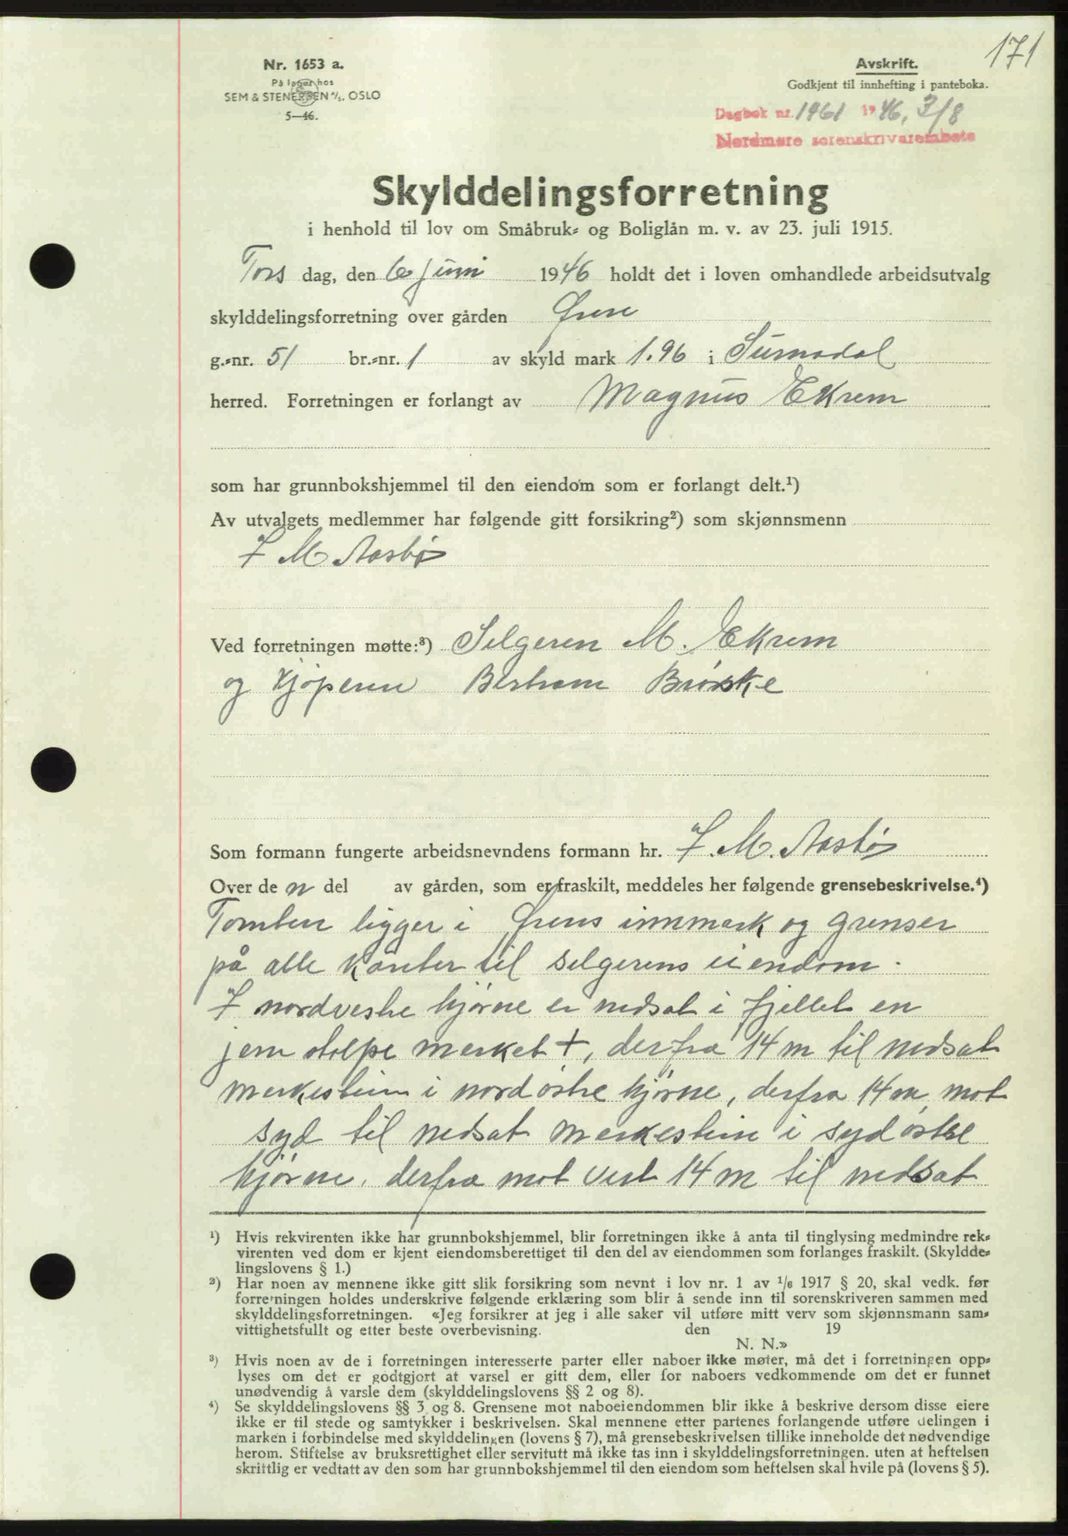 171
Nr. 1653 a.
På lager hos
SEM & STENERSEN A/S. OSLO
5—46.
Avskrift.
Godkjent til innhefting i panteboka.
Dagbok nr. 1961 1946, 3/8
Nordmøre sorenskriverembete
Skylddelingsforretning
i henhold til lov om Småbruk- og Boliglån m. v. av 23. juli 1915.
Tors dag, den 6 juni 1946 holdt det i loven omhandlede arbeidsutvalg
skylddelingsforretning over gården Øren
g.-nr. 51 br.-nr. 1 av skyld mark 1.96 i Surnadal
herred. Forretningen er forlangt av Magnus Ekrem
som har grunnbokshjemmel til den eiendom som er forlangt delt.¹)
Av utvalgets medlemmer har følgende gitt forsikring²) som skjønnsmenn
I M Aasbø
Ved forretningen møtte:³) Selgeren M. Ekrem
og kjøperen Bertram Brøske
Som formann fungerte arbeidsnevndens formann hr. I. M. Aasbø
Over de n del av gården, som er fraskilt, meddeles her følgende grensebeskrivelse.⁴)
Tomten ligger i Ørens innmark og grenser
på alle kanter til selgerens eiendom.
I nordvestre hjørne er nedsat i fjellet en
jern stolpe merket +, derfra 14 m til nedsat
merkestein i nordøstre hjørne, derfra 14 m mot
syd til nedsat merkestein i sydøstre
hjørne, derfra mot vest 14 m til nedsat
¹) Hvis rekvirenten ikke har grunnbokshjemmel, blir forretningen ikke å anta til tinglysing medmindre rek-
virenten ved dom er kjent eiendomsberettiget til den del av eiendommen som forlanges fraskilt. (Skyldde-
lingslovens § 1.)
²) Har noen av mennene ikke gitt slik forsikring som nevnt i lov nr. 1 av 1/6 1917 § 20, skal vedk. før
forretningen holdes underskrive følgende erklæring som blir å sende inn til sorenskriveren sammen med
skylddelingsforretningen. «Jeg forsikrer at jeg i alle saker vil utføre mitt verv som skjønnsmann sam-
vittighetsfullt og etter beste overbevisning. den 19
N. N.»
³) Hvis noen av de i forretningen interesserte parter eller naboer ikke møter, må det i forretningen opp-
lyses om det er godtgjort at varsel er gitt dem, eller for naboers vedkommende om det er funnet
unødvendig å varsle dem (skylddelingslovens §§ 2 og 8).
⁴) Se skylddelingslovens §§ 3 og 8. Grensene mot naboeiendommen blir ikke å beskrive dersom disse eiere
ikke er til stede og samtykker i beskrivelsen. Skal mennene etter partenes forlangende utføre delingen i
marken i forbindelse med skylddelingen (lovens § 7), må grensebeskrivelsen tillike inneholde det nødvendige
herom. Stiftelse av bruksrettighet eller servitutt må ikke tas inn i skylddelingsforretningen. uten at heftelsen
skriftlig er vedtatt av den som har grunnbokshjemmel til den eiendom som heftelsen skal hvile på (lovens § 5).